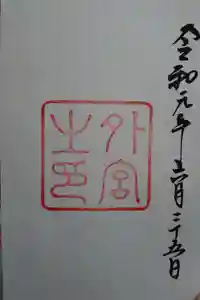 令和元年十一月二十五日
外宮
之印